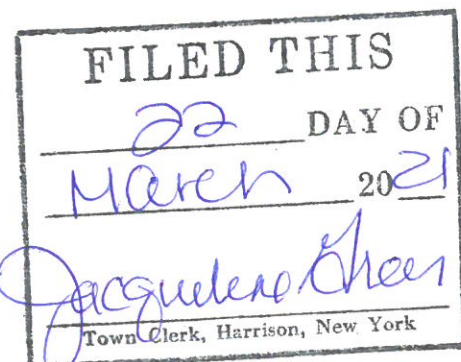 FILED THIS
22 DAY OF
March 2021
Jacqueline Greer
Town Clerk, Harrison, New York